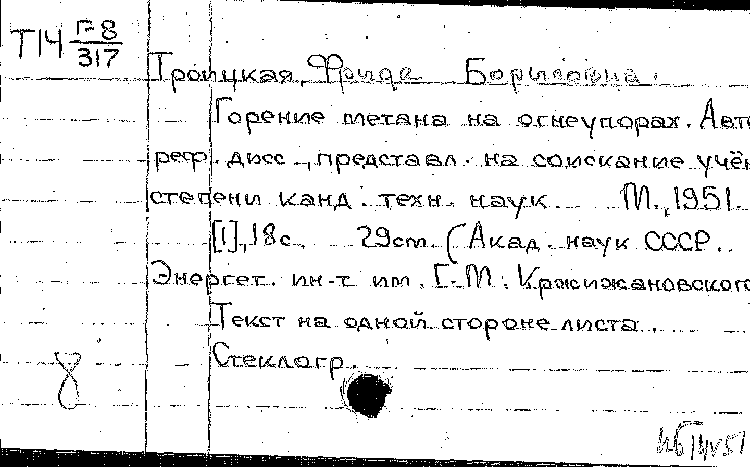 Т14 Г-8
317
Троицкая, Фрида Борисовна.
Горение метана на огнеупорах. Авто
реф. дисс., представл. на соискание учён
степени канд. техн. наук М., 1951.
[1], 18с. 29cm. (Акад. наук СССР.
Энергет. ин-т им. Г.М. Кржижановского
Текст на одной стороне листа.
Стеклогр.
8